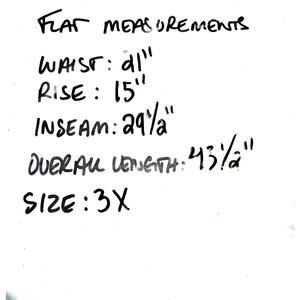 FLAT MEASUREMENTS
WAIST: 21"
RISE: 15"
INSEAM: 29½"
OVERALL LENGTH: 43½"
SIZE: 3X